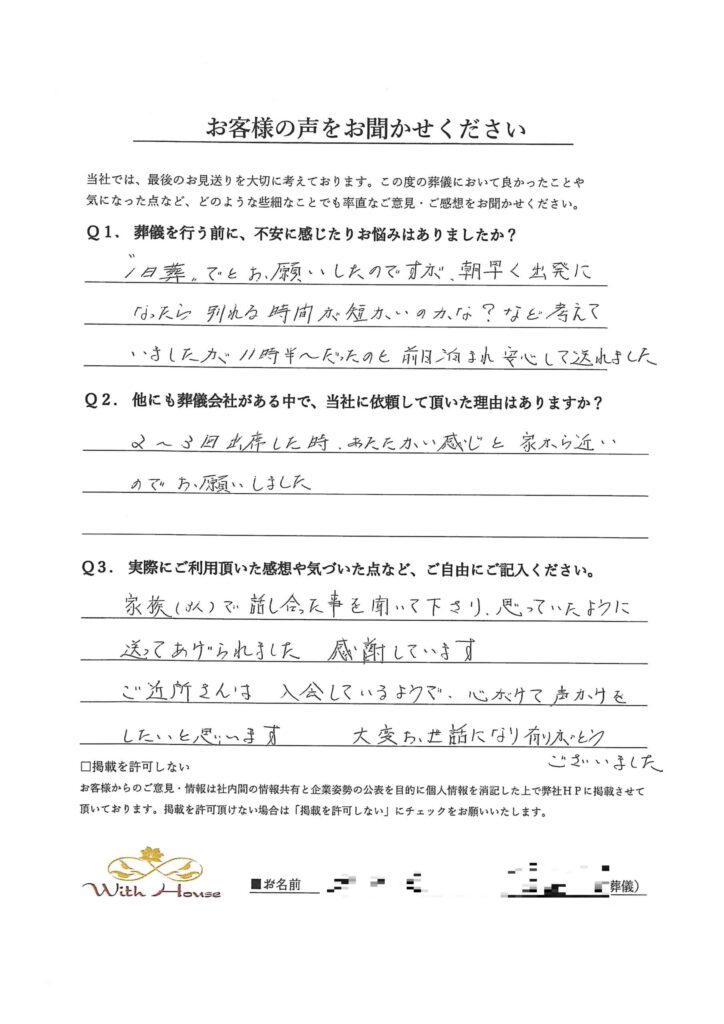 お客様の声をお聞かせください
当社では、最後のお見送りを大切に考えております。この度の葬儀において良かったことや
気になった点など、どのような些細なことでも率直なご意見・ご感想をお聞かせください。
Q1. 葬儀を行う前に、不安に感じたりお悩みはありましたか？
"1日葬"でとお願いしたのですが、朝早く出発に
なったら 別れる時間が短かいのかな？など考えて
いましたが 11時半〜だったのと 前日泊まれ安心して送れました
Q2. 他にも葬儀会社がある中で、当社に依頼して頂いた理由はありますか？
2〜3回出席した時、あたたかい感じと 家から近い
のでお願いしました
Q3. 実際にご利用頂いた感想や気づいた点など、ご自由にご記入ください。
家族()で話し合った事を聞いて下さり、思っていたように
送ってあげられました 感謝しています
ご近所さんは 入会しているようで、心がけて声かけを
したいと思います 大変お世話になり有りがとう
ございました
□掲載を許可しない
お客様からのご意見・情報は社内間の情報共有と企業姿勢の公表を目的に個人情報を消記した上で弊社HPに掲載させて
頂いております。掲載を許可頂けない場合は「掲載を許可しない」にチェックをお願いいたします。
With House
■お名前
葬儀）